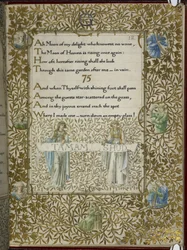 Ah Moon of my delight who knowest no wane,
The Moon of Heaven is rising once again:
How oft hereafter rising shall she look
Through this same garden after me — in vain.
75
And when Thyself with shining foot shall pass
Among the guests star-scattered on the grass,
And in thy joyous errand reach the spot
Where I made one — turn down an empty glass!